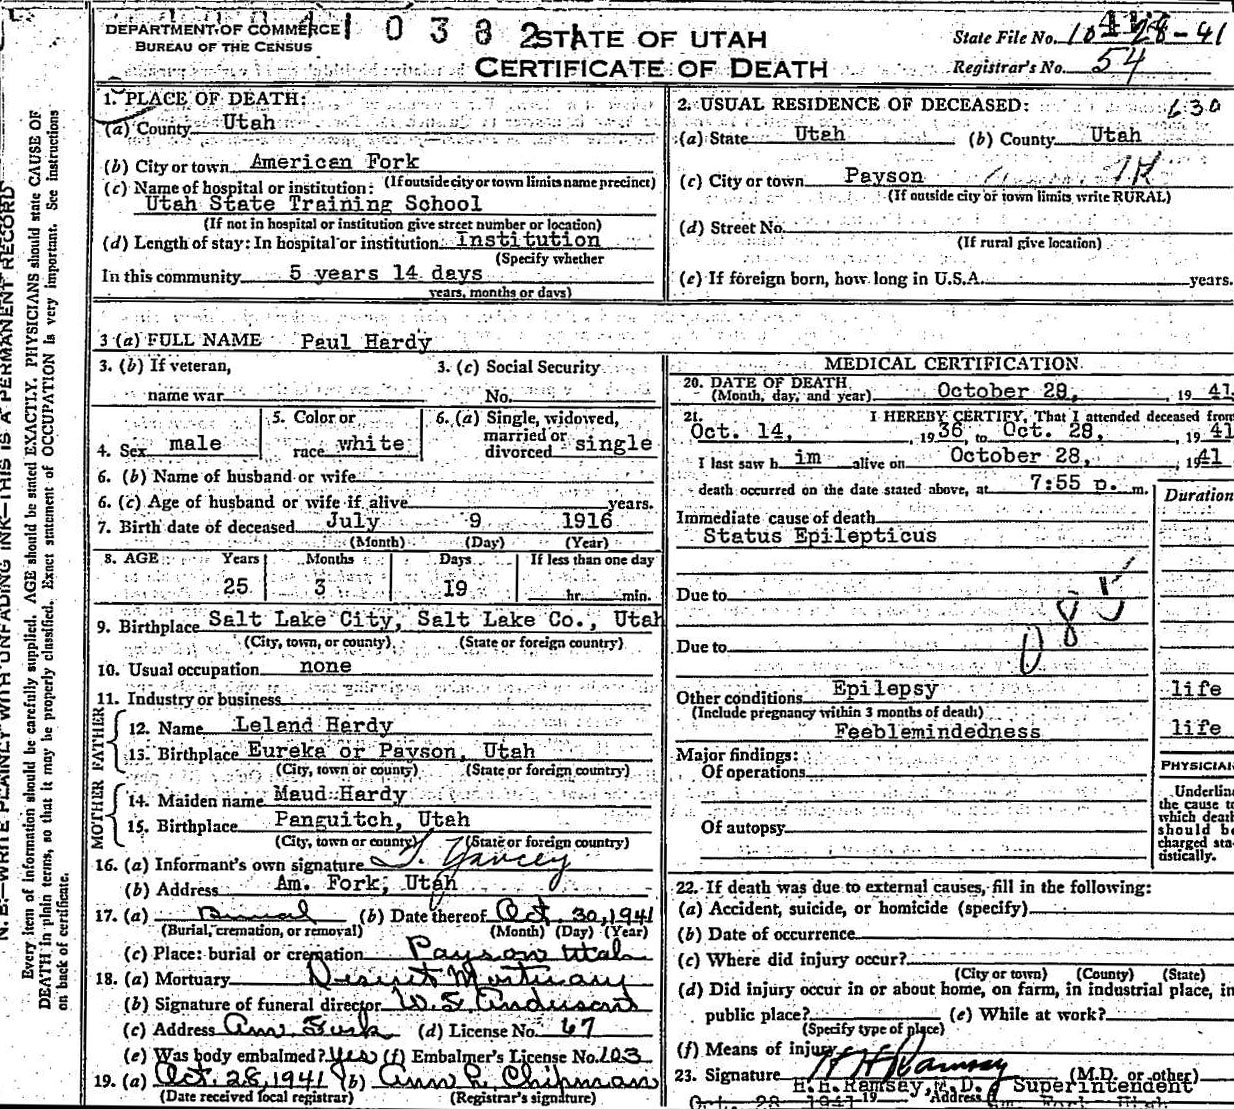 DEPARTMENT OF COMMERCE
BUREAU OF THE CENSUS
STATE OF UTAH
CERTIFICATE OF DEATH
State File No. 10-28-41
Registrar's No. 54
1. PLACE OF DEATH:
(a) County Utah
(b) City or town American Fork
(If outside city or town limits name precinct)
(c) Name of hospital or institution:
Utah State Training School
(If not in hospital or institution give street number or location)
(d) Length of stay: In hospital or institution institution
(Specify whether
In this community 5 years 14 days
years, months or days)
2. USUAL RESIDENCE OF DECEASED: 630
(a) State Utah (b) County Utah
(c) City or town Payson
(If outside city or town limits write RURAL)
(d) Street No.
(If rural give location)
(e) If foreign born, how long in U.S.A. years.
3 (a) FULL NAME Paul Hardy
3. (b) If veteran,
name war
3. (c) Social Security
No.
4. Sex male
5. Color or
race white
6. (a) Single, widowed,
married or
divorced single
6. (b) Name of husband or wife
6. (c) Age of husband or wife if alive years.
7. Birth date of deceased July 9 1916
(Month) (Day) (Year)
8. AGE Years Months Days If less than one day
25 3 19 hr. min.
9. Birthplace Salt Lake City, Salt Lake Co., Utah
(City, town, or county) (State or foreign country)
10. Usual occupation none
11. Industry or business
FATHER
12. Name Leland Hardy
13. Birthplace Eureka or Payson, Utah
(City, town or county) (State or foreign country)
MOTHER
14. Maiden name Maud Hardy
15. Birthplace Panguitch, Utah
(City, town or county) (State or foreign country)
16. (a) Informant's own signature Yancey
(b) Address Am. Fork, Utah
17. (a) Burial (b) Date thereof Oct 30, 1941
(Burial, cremation, or removal) (Month) (Day) (Year)
(c) Place: burial or cremation Payson Utah
18. (a) Mortuary Deseret Mortuary
(b) Signature of funeral director W. S. Anderson
(c) Address Am. Fork (d) License No. 67
(e) Was body embalmed? Yes (f) Embalmer's License No. 103
19. (a) Oct. 28, 1941 (b) Ann L. Chipman
(Date received local registrar) (Registrar's signature)
MEDICAL CERTIFICATION
20. DATE OF DEATH
(Month, day, and year) October 28, 1941
21. I HEREBY CERTIFY, That I attended deceased from
Oct. 14, 1936 to Oct. 28, 1941
I last saw h im alive on October 28, 1941
death occurred on the date stated above, at 7:55 p. m.
Duration
Immediate cause of death
Status Epilepticus
Due to
085
Due to
Other conditions Epilepsy life
(Include pregnancy within 3 months of death)
Feeblemindedness life
Major findings:
Of operations
Of autopsy
PHYSICIAN
Underline
the cause to
which death
should be
charged sta-
tistically.
22. If death was due to external causes, fill in the following:
(a) Accident, suicide, or homicide (specify)
(b) Date of occurrence
(c) Where did injury occur?
(City or town) (County) (State)
(d) Did injury occur in or about home, on farm, in industrial place, in
public place? (e) While at work?
(Specify type of place)
(f) Means of injury
23. Signature H H Ramsay (M.D. or other)
H. H. Ramsay, M. D. Superintendent
Oct. 28 1941 19 Address Am. Fork Utah
N. B.—WRITE PLAINLY WITH UNFADING INK—THIS IS A PERMANENT RECORD
Every item of information should be carefully supplied. AGE should be stated EXACTLY. PHYSICIANS should state CAUSE OF
DEATH in plain terms, so that it may be properly classified. Exact statement of OCCUPATION is very important. See instructions
on back of certificate.